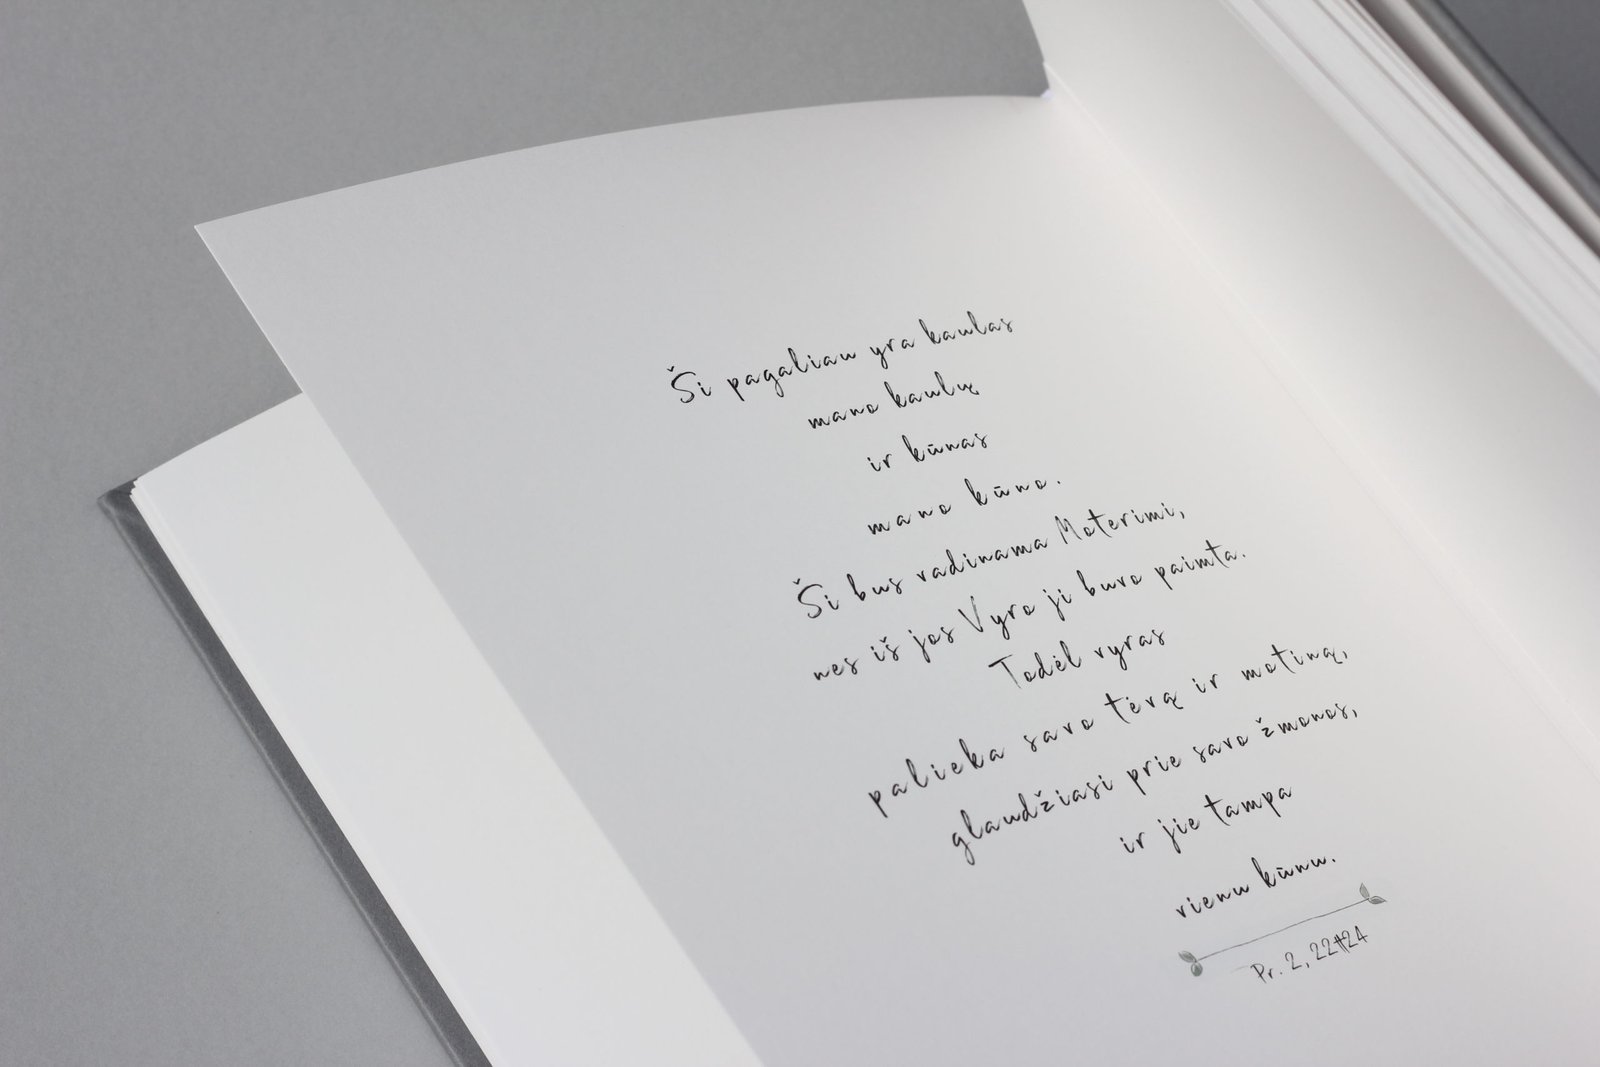 Ši pagaliau yra kaulas
mano kaulų
ir kūnas
mano kūno.
Ši bus vadinama Moterimi,
nes iš jos Vyro ji buvo paimta.
Todėl vyras
palieka savo tėvą ir motiną,
glaudžiasi prie savo žmonos,
ir jie tampa
vienu kūnu.
Pr. 2, 22#24